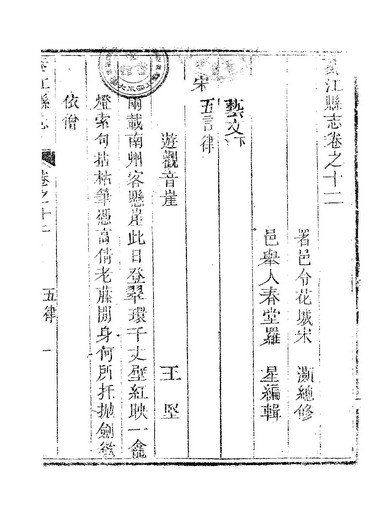 綦江縣志卷之十二
署邑令花城宋灝總修
邑舉人春堂羅星編輯
藝文下
五言律
宋
遊觀音崖 王堅
兩載南州客懸崖此日登翠環千丈壁紅映一龕
燈索句拈枯筆憑高倩老藤閒身何所托拋劍
依僧
綦江縣志 卷之十二 五律 一